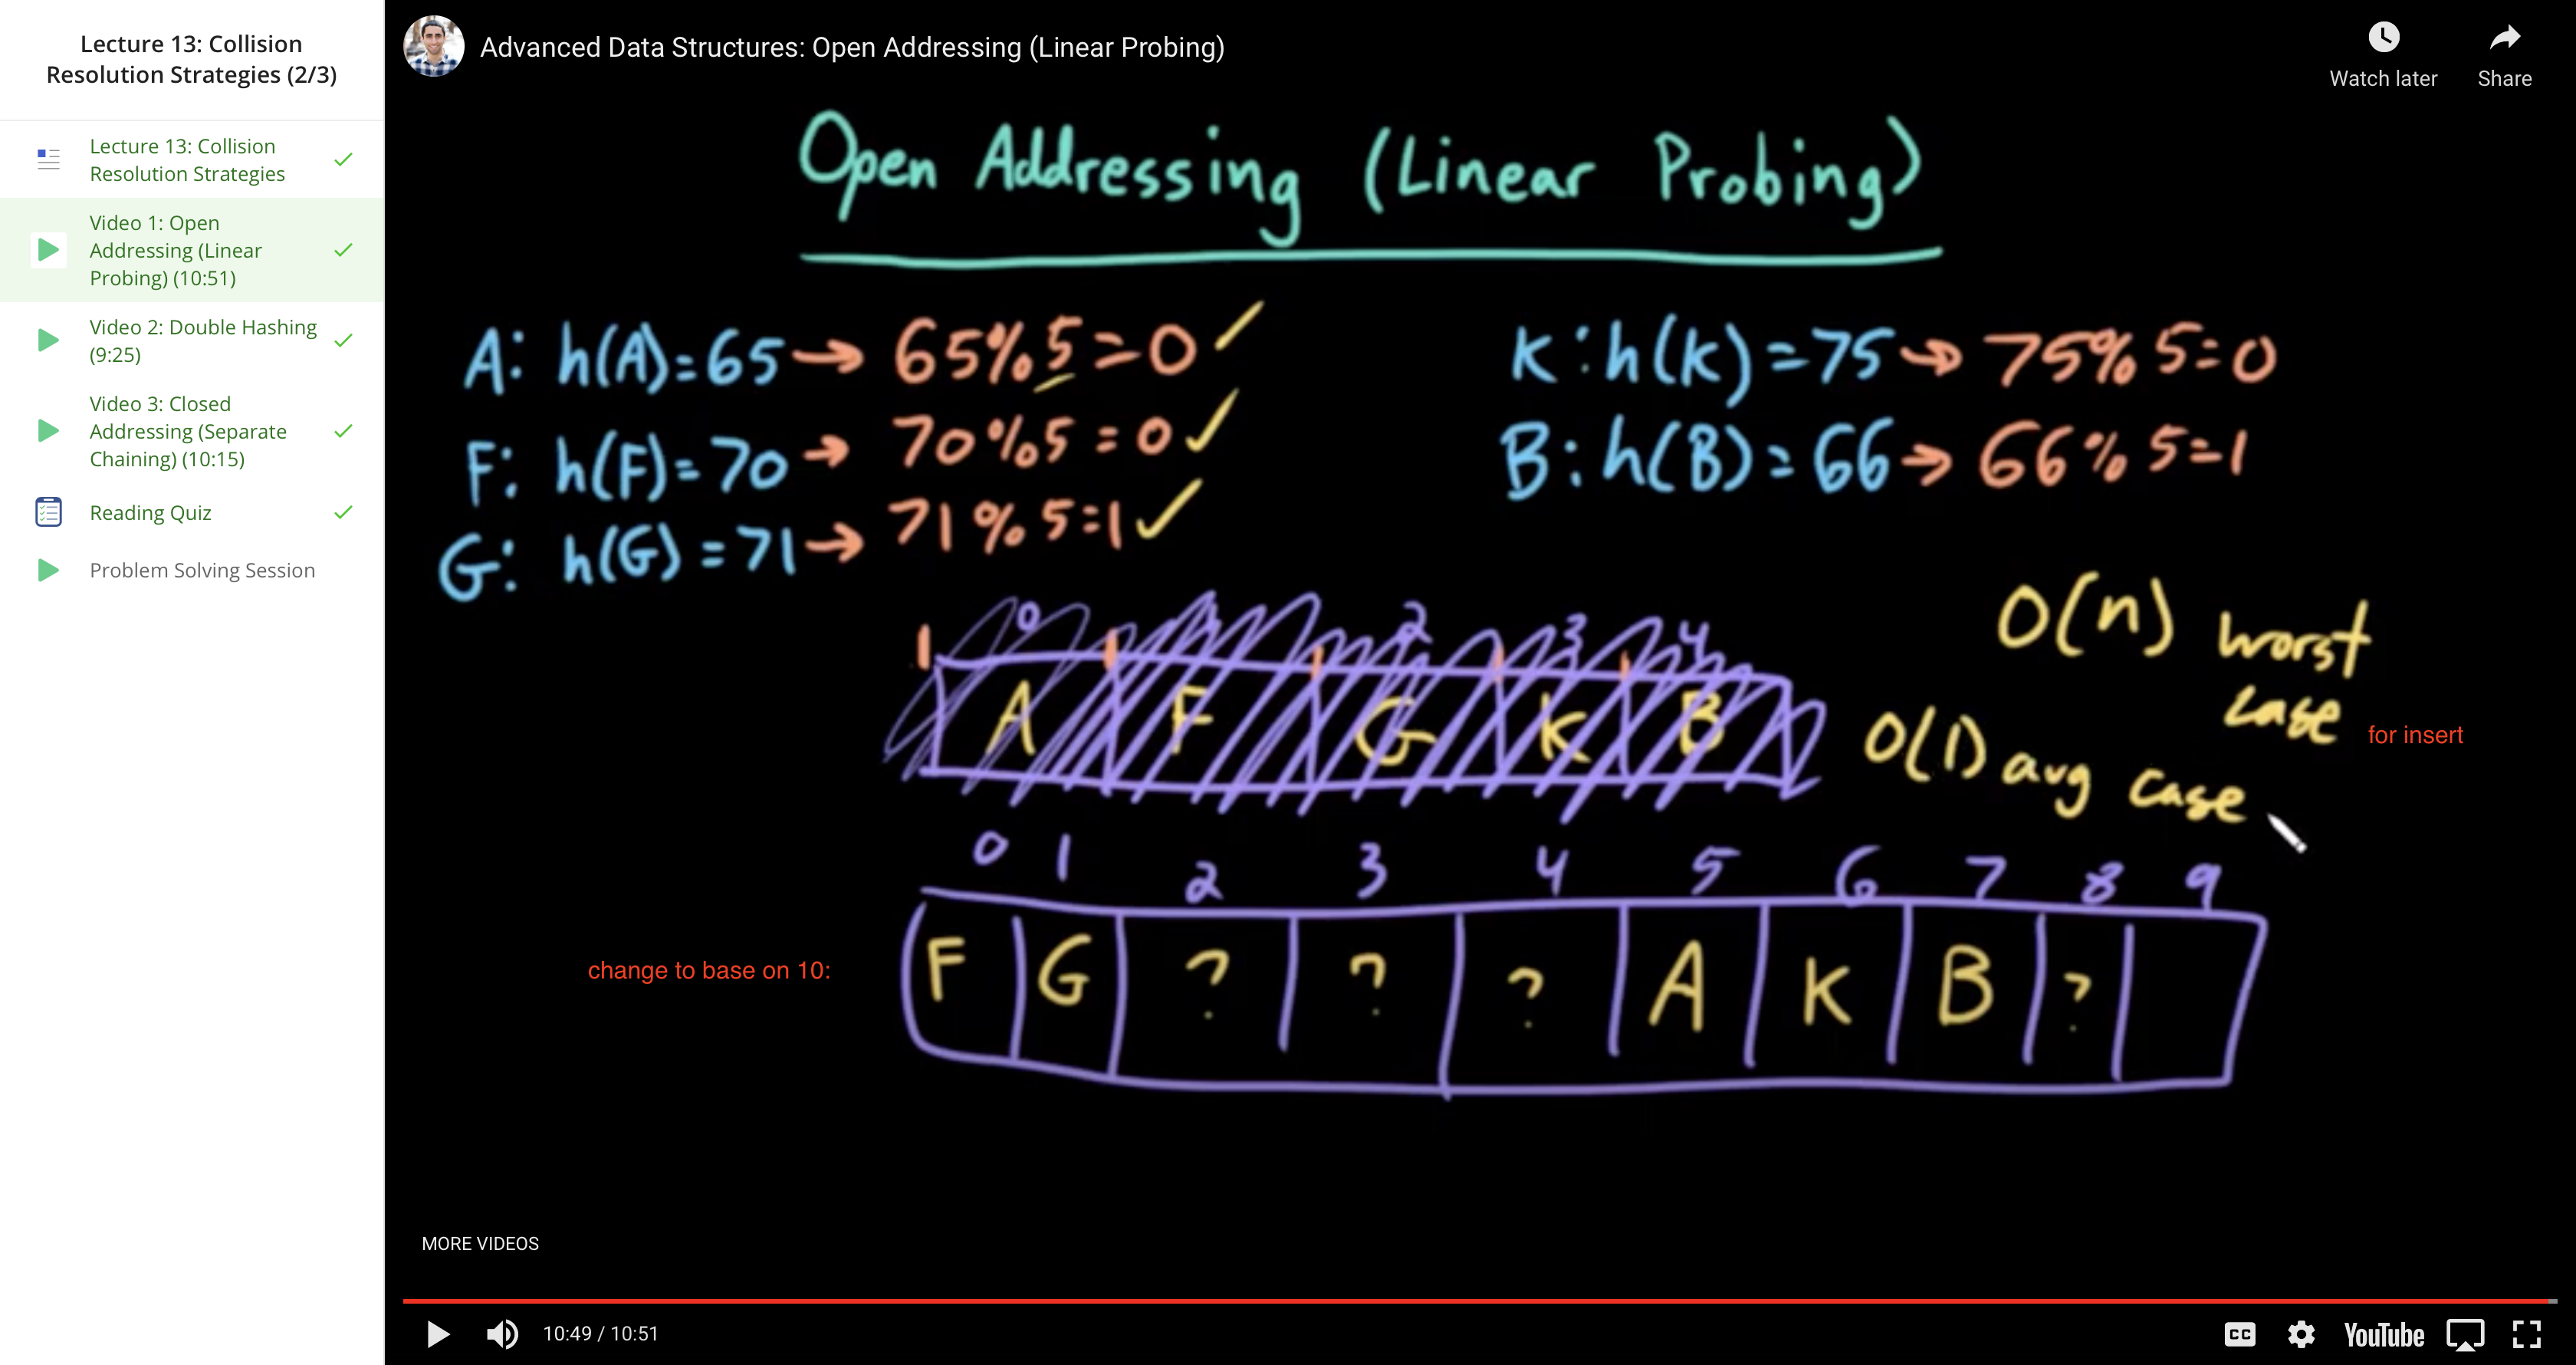 Lecture 13: Collision
Resolution Strategies (2/3)
Lecture 13: Collision
Resolution Strategies
Video 1: Open
Addressing (Linear
Probing) (10:51)
Video 2: Double Hashing
(9:25)
Video 3: Closed
Addressing (Separate
Chaining) (10:15)
Reading Quiz
Problem Solving Session
Advanced Data Structures: Open Addressing (Linear Probing)
Watch later
Share
Open Addressing (Linear Probing)
A: h(A)=65→ 65%5=0
F: h(F)=70→ 70%5=0
G: h(G)=71→ 71%5=1
K:h(K)=75→ 75%5=0
B:h(B)=66→ 66%5=1
0 2 3 4
A F G K B
O(n) worst
case
for insert
O(1) avg case
0 1 2 3 4 5 6 7 8 9
change to base on 10:
F G ? ? ? A K B ?
MORE VIDEOS
10:49 / 10:51
CC
YouTube